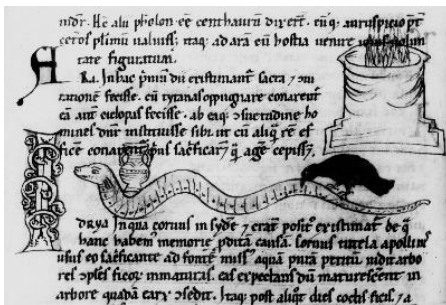 nidr̄. Hc̄ alii pholon eē centhaurū dixert̄. cū q; auruspicio p̄t
ceros plimū ualuiss; itaq; ad arā cū hostia uenire iouis uolun
tate figuratum.
ARa. In hac p̄mū dii existimant̄ sacra ⁊ ꝯiu
rationē fecisse. cū tytanas oppugnare conarent̄
eā aut̄ ciclopas fecisse. ab eaq; ꝯsuetudine ho
mines dn̄r instituisse sibi. ut cū aliq̄ rē ef
ficēe conarent̄ p̄us sac̄ficarēt q̄ agēe cepiss̄.
IDRYA In qua coruus in sydē ⁊ erat̄ positꝰ existimat̄ de q̄
hanc habem memorie ꝓditā causā. Coruus tutela apollinis
usus eo sac̄ficante ad fontē missꝰ aquā purā petitū uidit arbo
res ꝯplēs ficoꝝ inmaturas. eas expectans dū maturescerent̄ in
arbore quadā earꝝ ꝯsedit. Itaq; post aliqt̄ dies coctis ficis, ⁊ a